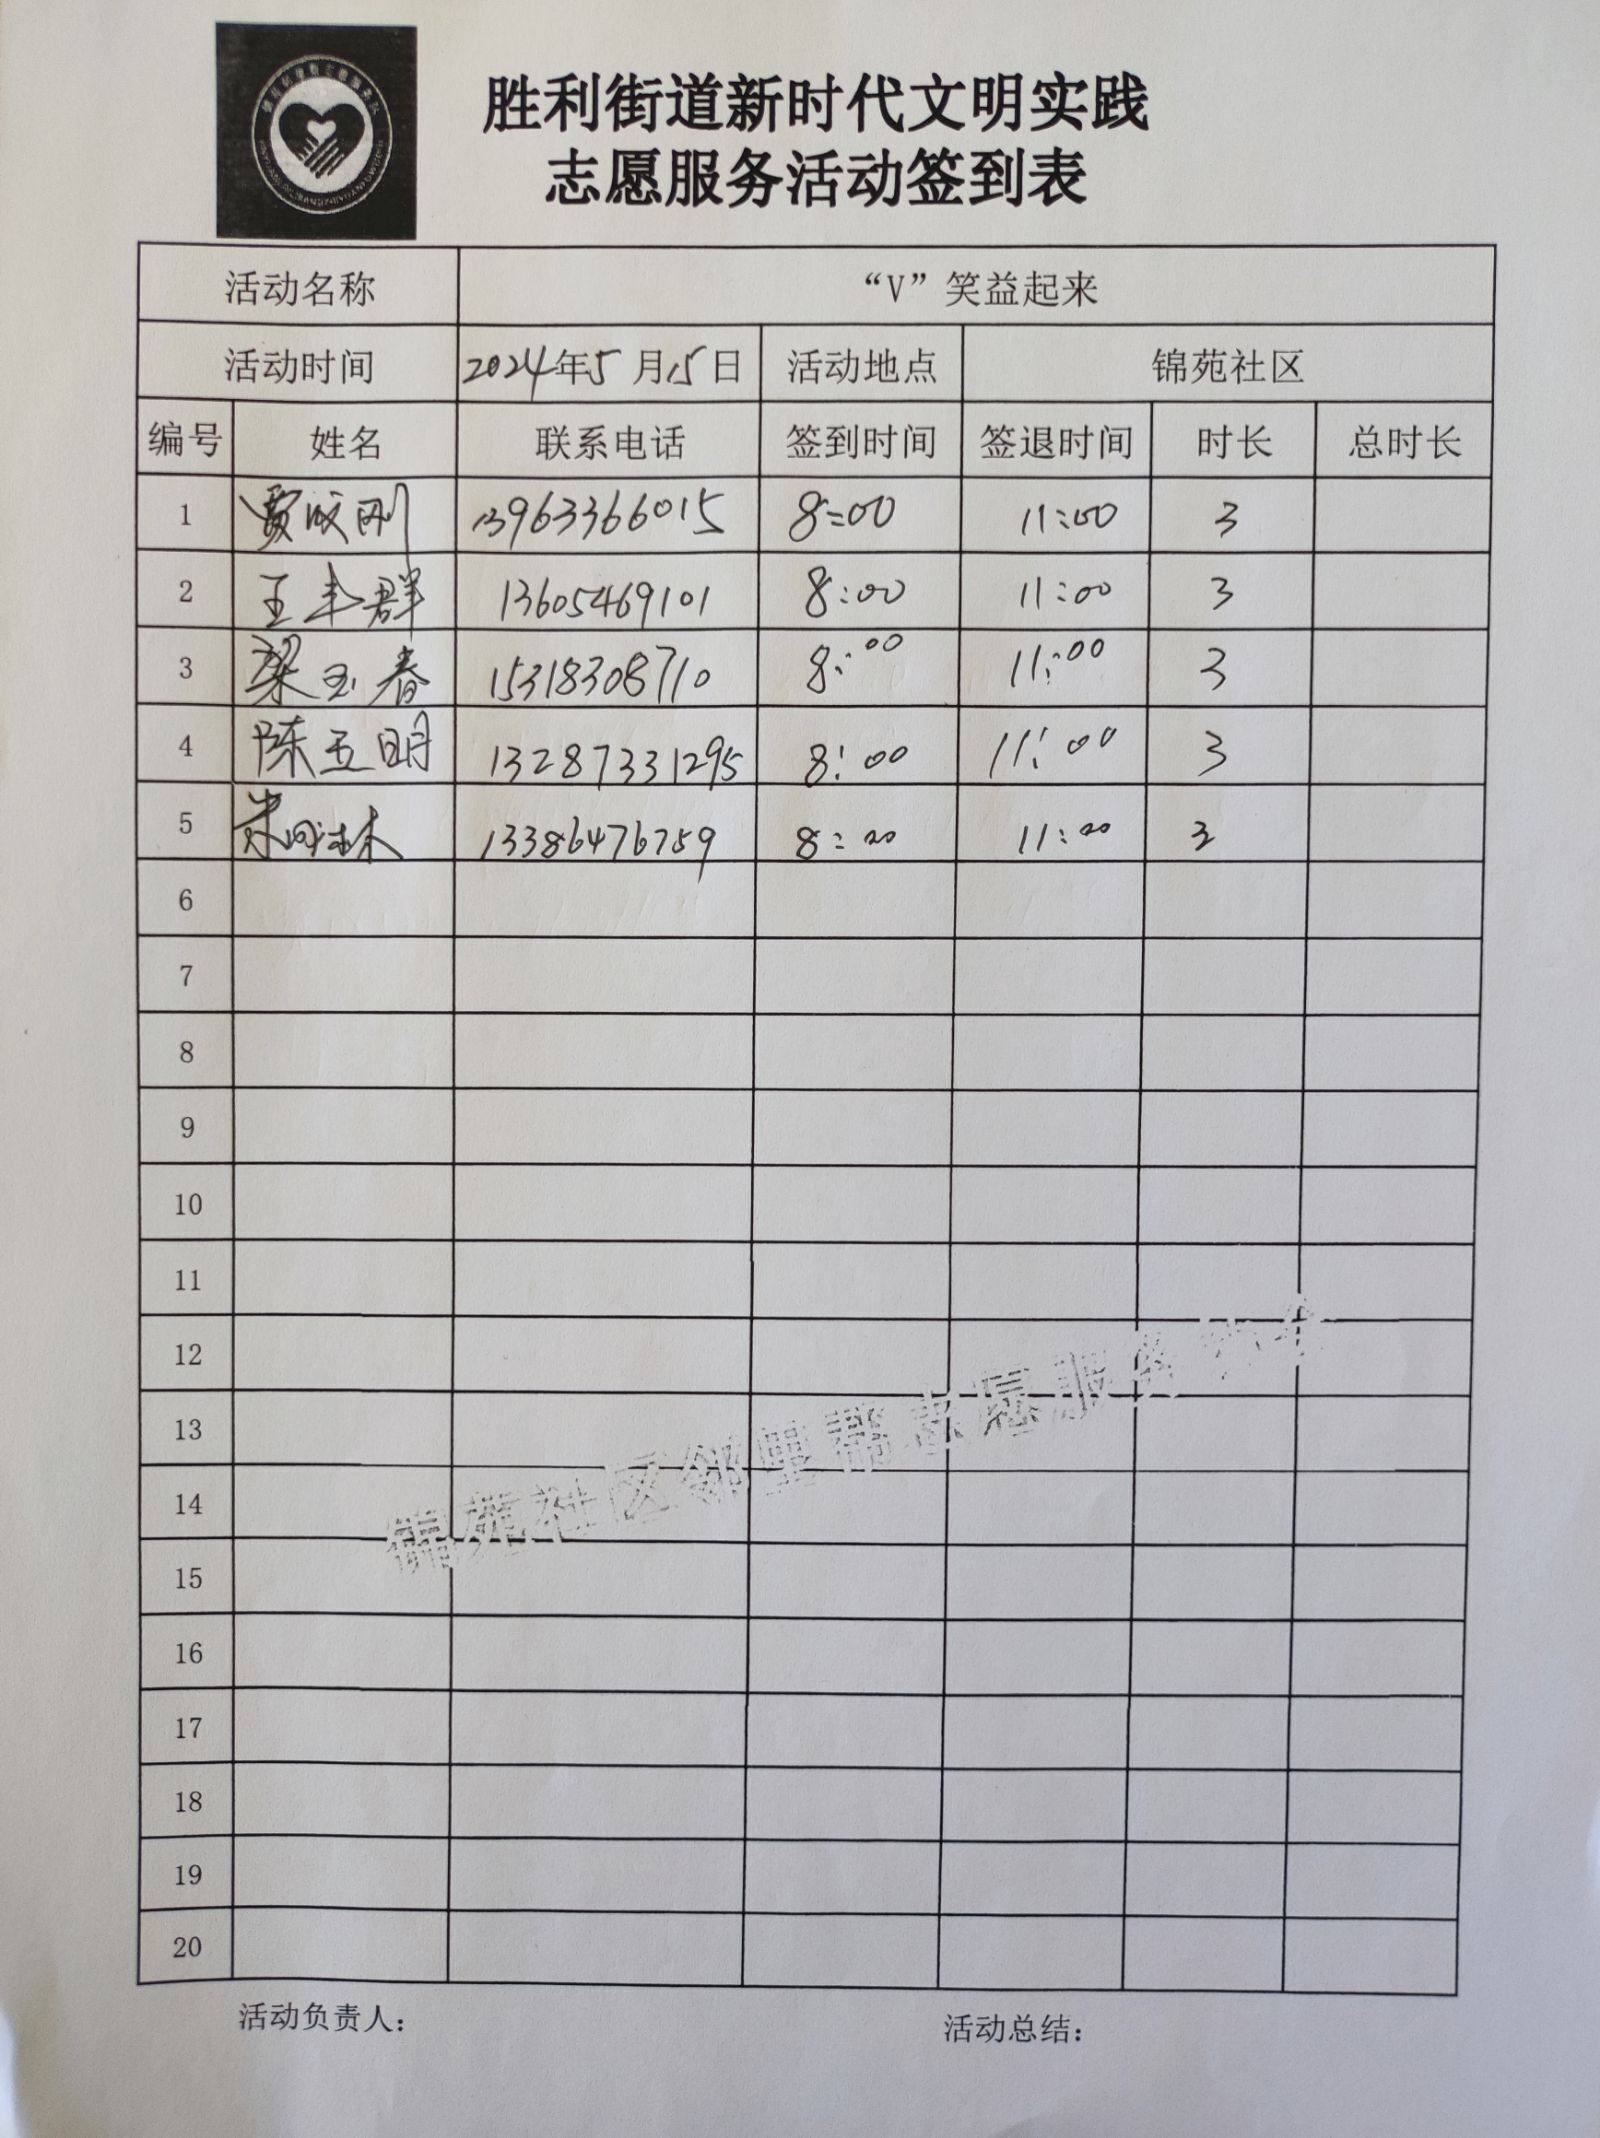 胜利街道新时代文明实践
志愿服务活动签到表
活动名称 “V”笑益起来
活动时间 2024年5月15日 活动地点 锦苑社区
编号 姓名 联系电话 签到时间 签退时间 时长 总时长
1 贾 刚 13963366015 8:00 11:00 3
2 王丰群 13605469101 8:00 11:00 3
3 梁玉春 15318308710 8:00 11:00 3
4 陈玉明 13287331295 8:00 11:00 3
5 13386476759 8:00 11:00 3
6
7
8
9
10
11
12
13
14
15
16
17
18
19
20
锦苑社区邻里帮志愿服务
活动负责人: 活动总结: